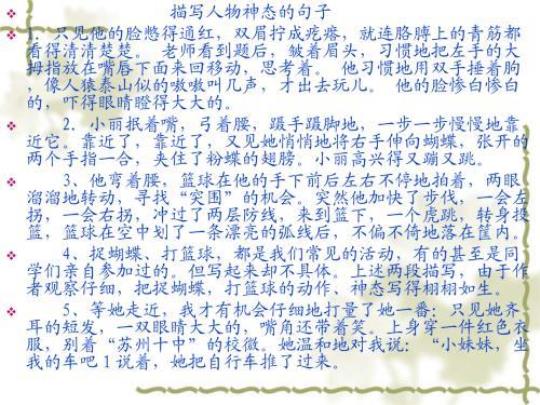 描写人物神态的句子
1. 只见他的脸憋得通红，双眉拧成疙瘩，就连胳膊上的青筋都
看得清清楚楚。 老师看到题后，皱着眉头，习惯地把左手的大
拇指放在嘴唇下面来回移动，思考着。 他习惯地用双手捶着胸
，像人猿泰山似的嗷嗷叫几声，才出去玩儿。 他的脸惨白惨白
的，吓得眼睛瞪得大大的。
2．小丽抿着嘴，弓着腰，蹑手蹑脚地，一步一步慢慢地靠
近它。靠近了，靠近了，又见她悄悄地将右手伸向蝴蝶，张开的
两个手指一合，夹住了粉蝶的翅膀。小丽高兴得又蹦又跳。
3、他弯着腰，篮球在他的手下前后左右不停地拍着，两眼
溜溜地转动，寻找“突围”的机会。突然他加快了步伐，一会左
拐，一会右拐，冲过了两层防线，来到篮下，一个虎跳，转身投
篮，篮球在空中划了一条漂亮的弧线后，不偏不倚地落在筐内。
4、捉蝴蝶、打篮球，都是我们常见的活动，有的甚至是同
学们亲自参加过的。但写起来却不具体。上述两段描写，由于作
者观察仔细，把捉蝴蝶、打篮球的动作、神态写得栩栩如生。
5、等她走近，我才有机会仔细地打量了她一番：只见她齐
耳的短发，一双眼睛大大的，嘴角还带着笑。上身穿一件红色衣
服，别着“苏州十中”的校微。她温和地对我说：“小妹妹，坐
我的车吧1说着，她把自行车推了过来。